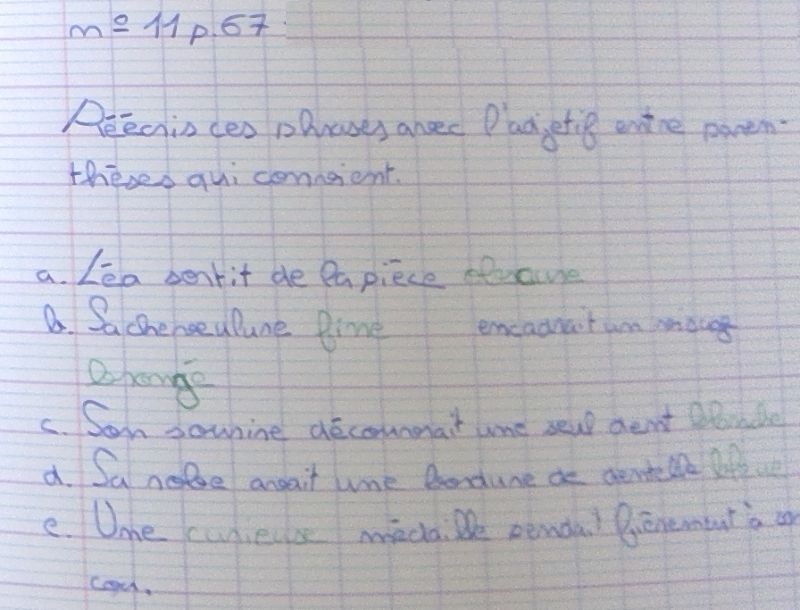 n° 11 p.67.
Réécris ces phrases avec l'adjetif entre paren-
thèses qui convient.
a. Léa sortit de la pièce obscure
b. Sa chevelure fine encadrait un visage
bronzé
c. Son sourire découvrait une seul dent blanche
d. Sa robe avait une bordure de dentelle bleue
e. Une curieuse médaille pendait fièrement à
cou.